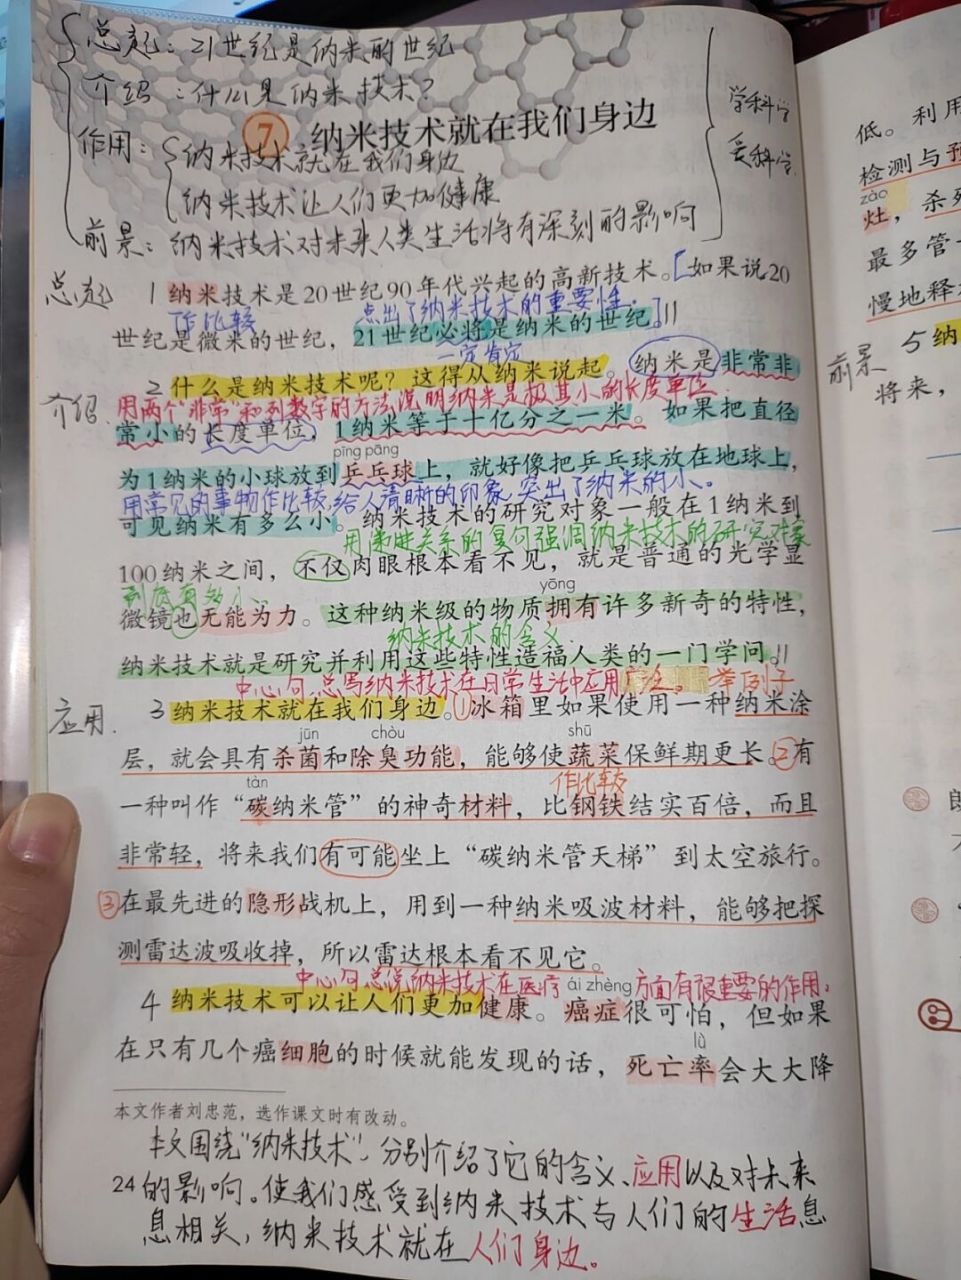 总起：21世纪是纳米的世纪
介绍：什么是纳米技术？
7 纳米技术就在我们身边
作用：
纳米技术就在我们身边
纳米技术让人们更加健康
前景：纳米技术对未来人类生活将有深刻的影响
学科学
爱科学
总起
1 纳米技术是20世纪90年代兴起的高新技术。如果说20
作比较 点出了纳米技术的重要性。
世纪是微米的世纪，21世纪必将是纳米的世纪。
一定肯定
介绍
2 什么是纳米技术呢？这得从纳米说起。纳米是非常非
用两个"非常"和列数字的方法，说明纳米是极其小的长度单位
常小的长度单位，1纳米等于十亿分之一米。如果把直径
pīng pāng
为1纳米的小球放到乒乓球上，就好像把乒乓球放在地球上，
用常见的事物作比较，给人清晰的印象，突出了纳米的小。
可见纳米有多么小。纳米技术的研究对象一般在1纳米到
用递进关系的复句强调纳米技术的研究对象
100纳米之间，不仅肉眼根本看不见，就是普通的光学显
yōng
微镜也无能为力。这种纳米级的物质拥有许多新奇的特性，
纳米技术的含义
纳米技术就是研究并利用这些特性造福人类的一门学问。
中心句，总写纳米技术在日常生活中应用广泛。 举例子
应用
3 纳米技术就在我们身边。①冰箱里如果使用一种纳米涂
jūn chòu shū
层，就会具有杀菌和除臭功能，能够使蔬菜保鲜期更长。②有
tàn 作比较
一种叫作“碳纳米管”的神奇材料，比钢铁结实百倍，而且
非常轻，将来我们有可能坐上“碳纳米管天梯”到太空旅行。
③在最先进的隐形战机上，用到一种纳米吸波材料，能够把探
测雷达波吸收掉，所以雷达根本看不见它。
中心句，总说纳米技术在医疗方面有很重要的作用。
ái zhèng
4 纳米技术可以让人们更加健康。癌症很可怕，但如果
lǜ
在只有几个癌细胞的时候就能发现的话，死亡率会大大降
本文作者刘忠范，选作课文时有改动。
本文围绕"纳米技术"，分别介绍了它的含义、应用以及对未来
24
的影响。使我们感受到纳米技术与人们的生活息
息相关，纳米技术就在人们身边。
低。利用
检测与预
zào
灶，杀死
最多管一
慢地释
前景
5 纳
将来，